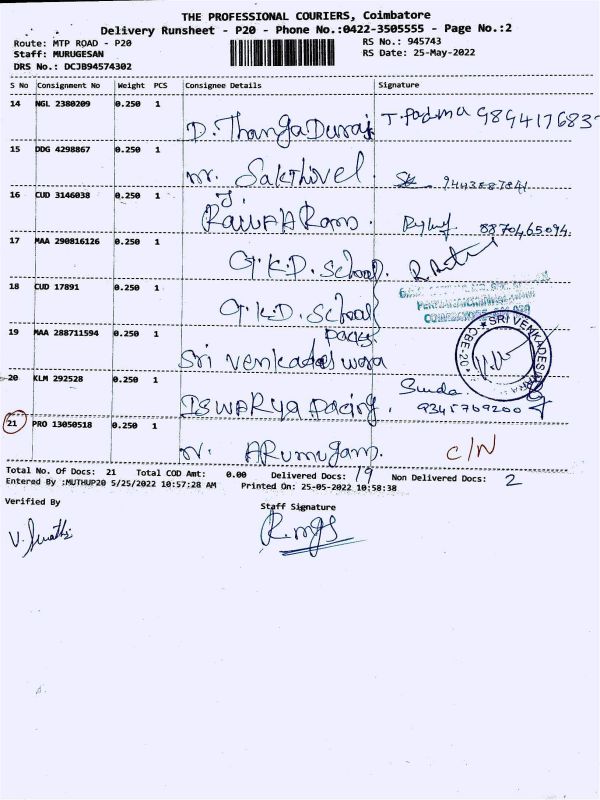 THE PROFESSIONAL COURIERS, Coimbatore
Delivery Runsheet - P20 - Phone No.:0422-3505555 - Page No.:2
Route: MTP ROAD - P20 RS No.: 945743
Staff: MURUGESAN RS Date: 25-May-2022
DRS No.: DCJB94574302
S No Consignment No Weight PCS Consignee Details Signature
14 NGL 2380209 0.250 1
D. ThangaDuraj T. Padma 989417683
15 DDG 4298867 0.250 1
mr. Sakthivel
16 CUD 3146038 0.250 1
J.
8870465094.
17 MAA 290816126 0.250 1
G.K.D. School.
18 CUD 17891 0.250 1
G.K.D. School
19 MAA 288711594 0.250 1
Packs
Sri venkadeswara
SRI VENKADES
CBE-20
20 KLM 292528 0.250 1
ISWARya Pacing.
9345709200
21 PRO 13050518 0.250 1
N. ARumugam. C/N
Total No. Of Docs: 21 Total COD Amt: 0.00 Delivered Docs: 19 Non Delivered Docs: 2
Entered By :MUTHUP20 5/25/2022 10:57:28 AM Printed On: 25-05-2022 10:58:38
Verified By Staff Signature